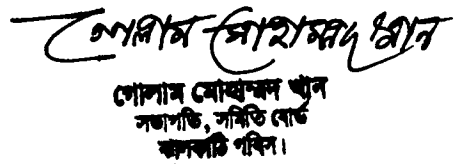 গোলাম মোহাম্মদ খান
গোলাম মোহাম্মদ খান
সভাপতি, সমিতি বোর্ড
ঝালকাঠি পবিস।